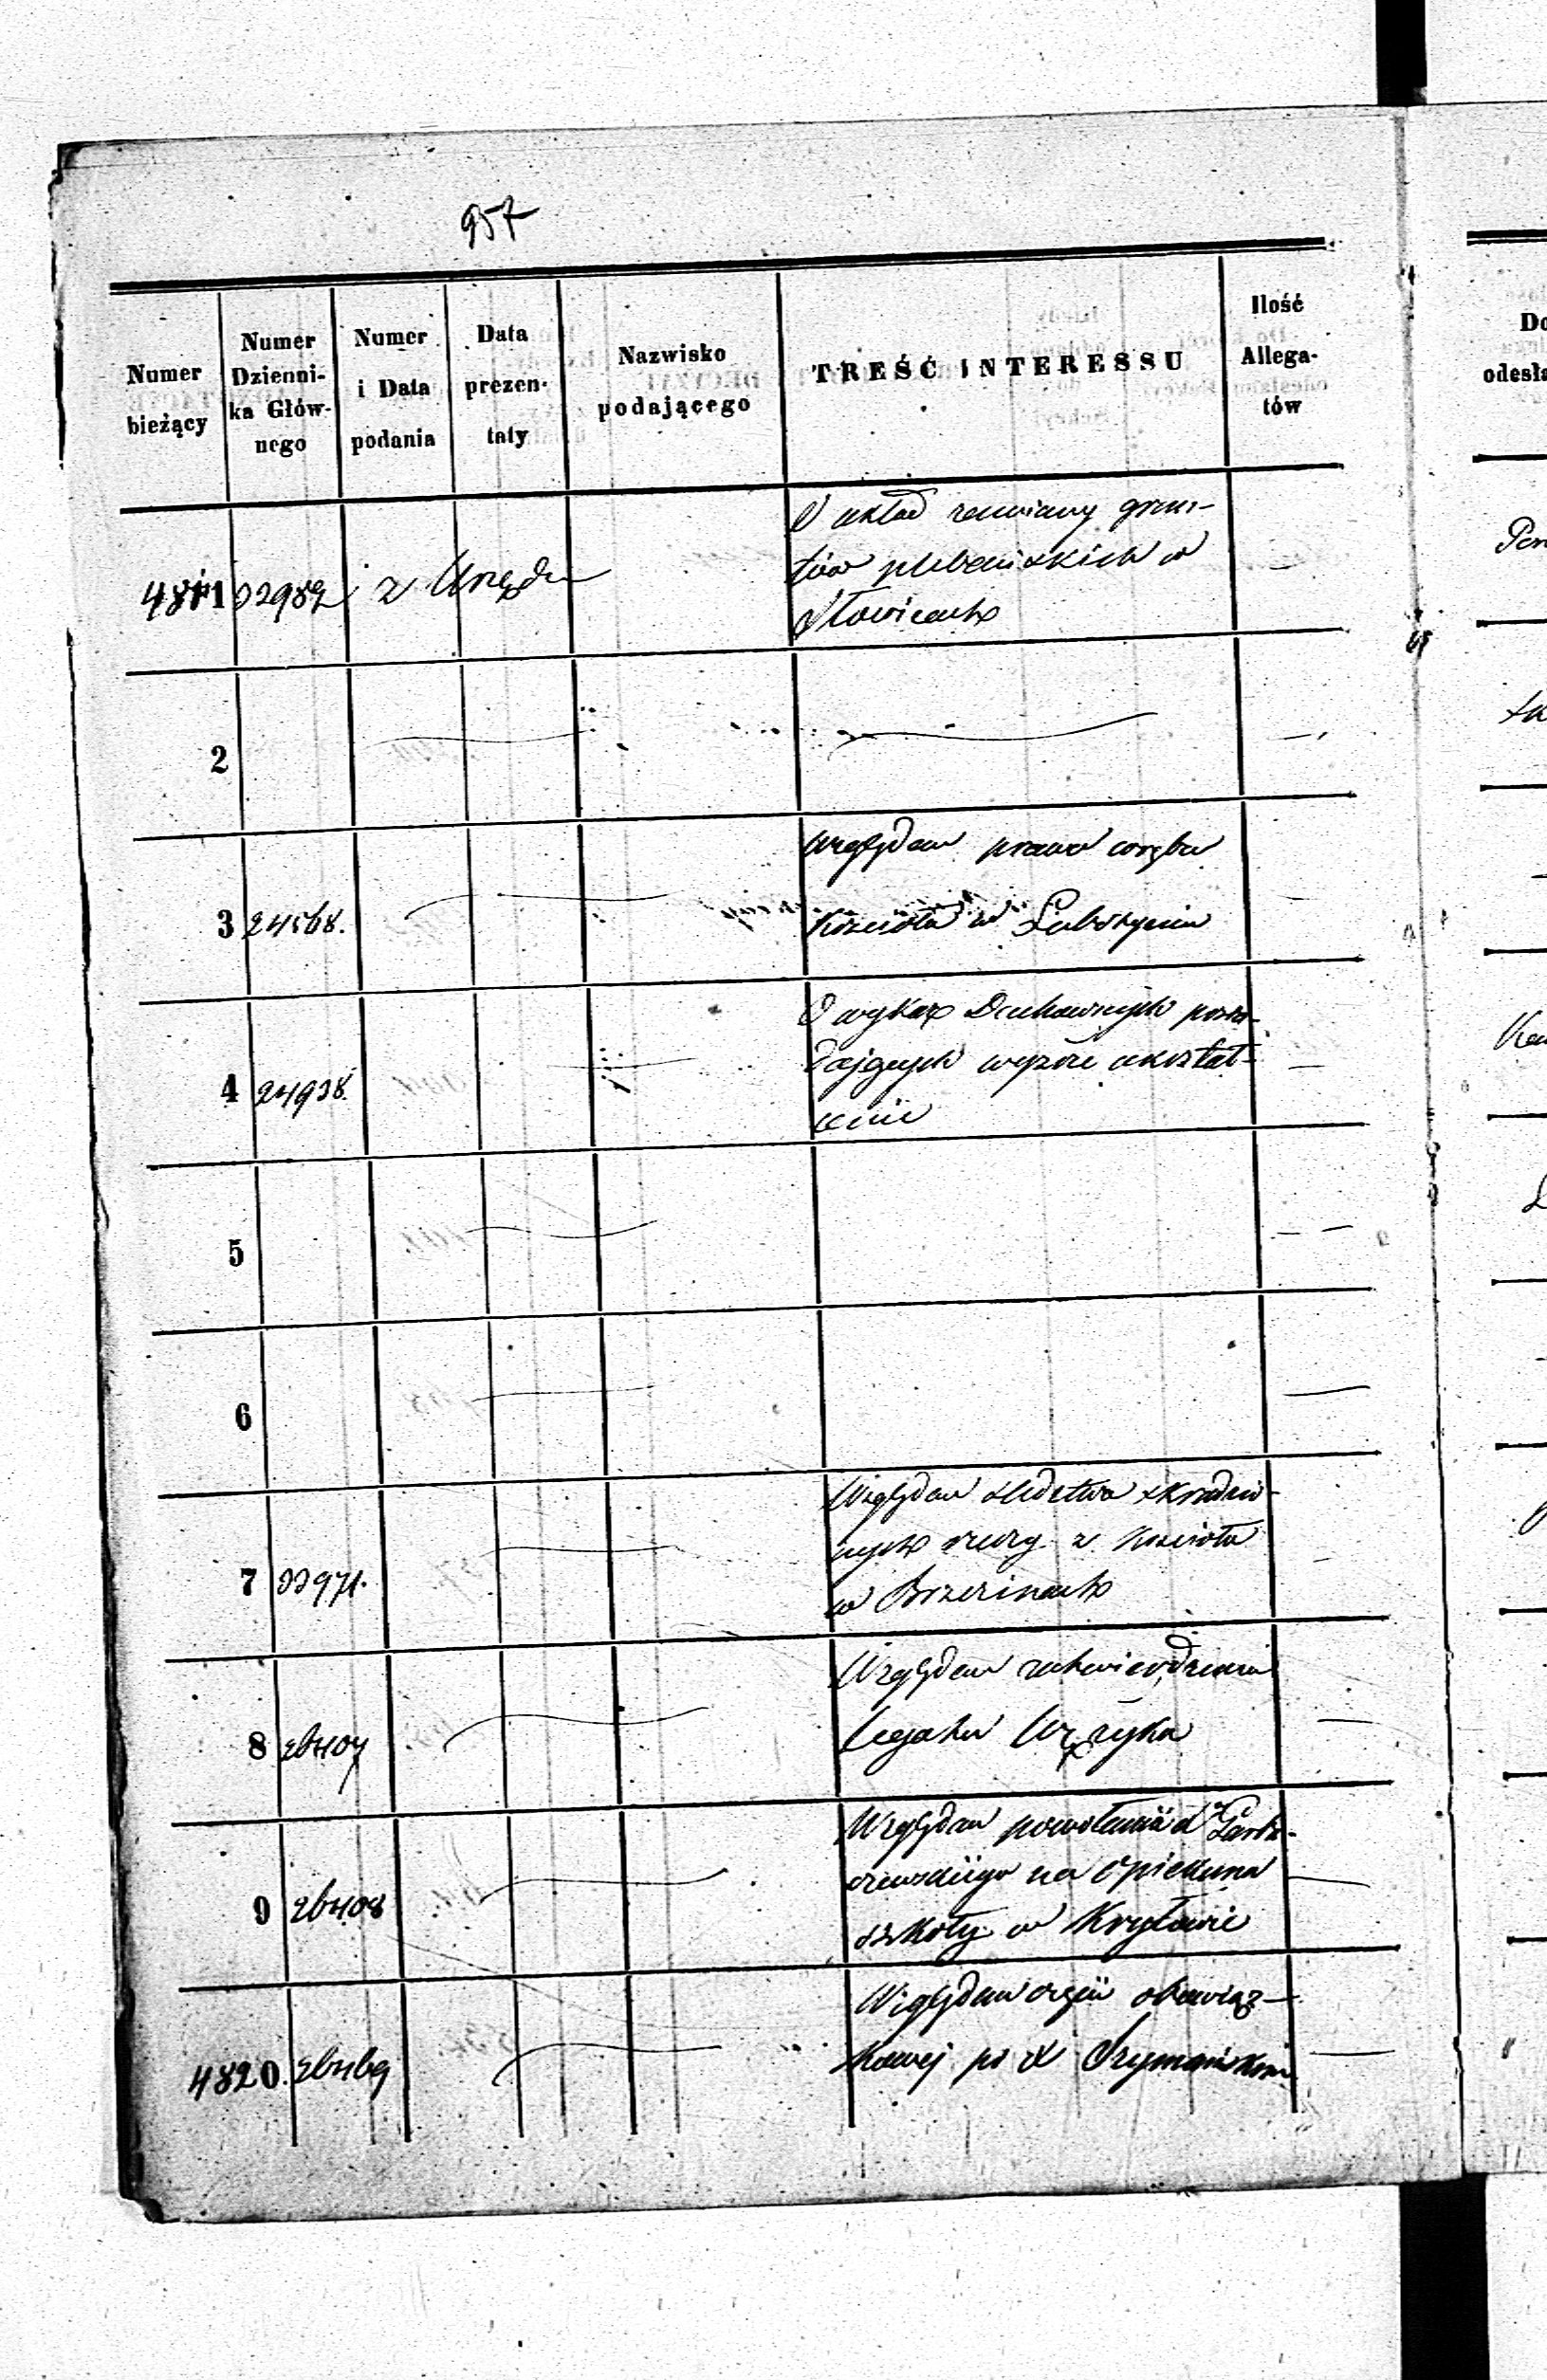 957
Numer bieżący
Numer Dzienni-ka Głów-nego
Numer i Data podania
Data prezen-taty
Nazwisko podającego
TREŚĆ INTERESSU
Ilość Allega-tów
Do
odesła
4811 22982 z Urzędu
O układ zamiany grun-
tów plebańskich w
Słowicach
2
3 24568.
względem prawa wrębu
Kościoła w
4 24928
O wykaz Duchownych posia-
dających wyższe ukształ-
cenie
5
6
7 22971.
Względem śledztwa skradzio-
nych rzeczy z Kościoła
w Brzezinach
8 26407
Względem zatwierdzenia
Legatu Wężyka
9 26408
Względem powołania
na Opiekuna
szkoły w Kryłowie
4820. 26469
Względem obowiąz-
kowej po X Szymańskim